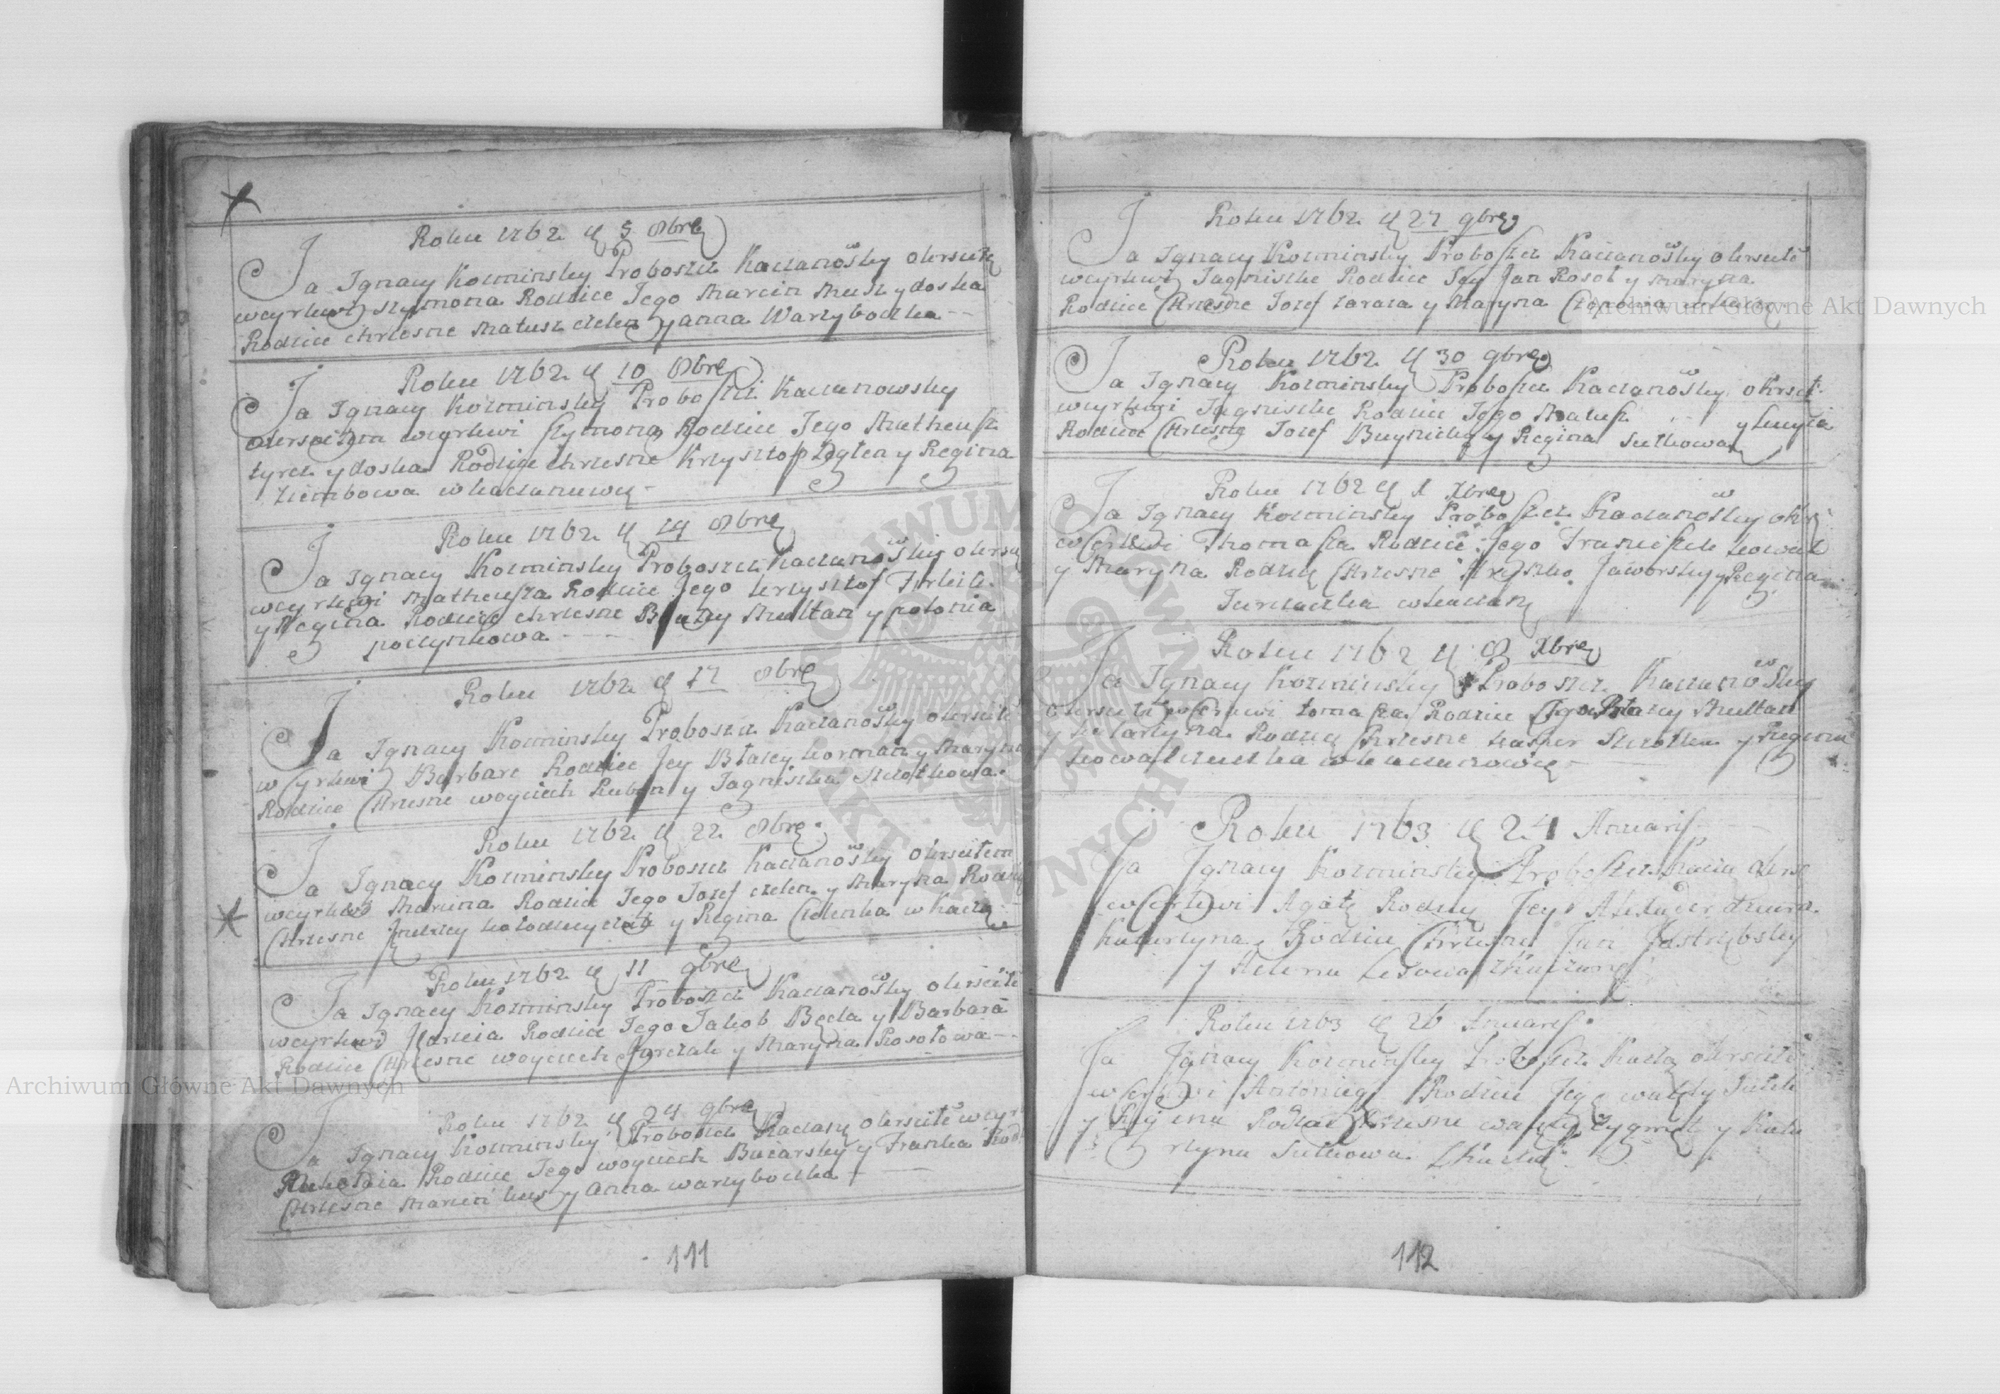 Roku 1762 d 5 8bre
Ja Ignacy Kozminsky Proboszcz Kaczanowsky okrscile
wcyrkwi szymona Rodzice Jego Marcin Much y doska
Rodzice chrzesne Matusz czelen y anna Warzybodka
Roku 1762 d 10 8bre
Ja Ignacy Kozminsky Proboszcz Kaczanowsky
okrscilem wcyrkwi szymona Rodzice Jego Matheusz
y doska Rodzice chrzesne Krzysztof y Regina
Ziembowa wkaczanuwcy
Roku 1762 d 14 8bre
Ja Ignacy Kozminsky Proboszcz kaczanowsky okrsci
wcyrkwi Matheusza Rodzice Jego krzysztof
y Regina Rodzice chrzesne Błazey Multan y polonia
poczynkowa
Roku 1762 d 17 8bre
Ja Ignacy Kozminsky Proboszcz Kaczanowsky okrscile
w Cyrkwi Barbare Rodzice Jey Błazey korman y Maryna
Rodzice Chrzesne woyciech Kuban y Jagniszka
Roku 1762 d 22 8bre
Ja Ignacy Kozminsky Proboszcz Kaczanowsky okrscilem
wcyrkwi Marcina Rodzice Jego Jozef czelen y Maryna Rodzice
Chrzesne y Regina Czelenka w Kacza
Roku 1762 d 11 9bre
Ja Ignacy Kozminsky Proboszcz Kaczanowsky okrscile
wcyrkwi Jdrzeia Rodzice Jego Jakob Będa y Barbara
Rodzice Chrzesne woyciech y Maryna Rosołowa
Roku 1762 d 24 9bre
Ja Ignacy Kozminsky Proboszcz Kaczano okrscile wcyr
Mikołaia Rodzice Jego woyciech Bucarsky y Franka Rodz
Chrzesne Marcin y anna warzybodka
111
Roku 1762 d 27 9bre
Ja Ignacy Kozminsky Proboszcz Kaczanowsky okrscile
wcyrkwi Jagniszke Rodzice Jey Jan Rosoł y Maryna
Rodzice Chrzesne Jozef zaraza y Maryna
Roku 1762 d 30 9bre
Ja Ignacy Kozminsky Proboszcz Kaczanowsky okrscil
wcyrkwi Jagniszke Rodzice Jego Matusz y Lucyia
Rodzice Chrzesne Jozef y Regina Sulkowa
Roku 1762 d 1 Xbre
Ja Ignacy Kozminsky Proboszcz Kaczanowsky okrs
w Cyrkwi Thomasza Rodzice Jego Franciszek kowal
y Maryna Rodzice Chrzesne Jaworsky y Regina
Jurczaczka wkaczan
Roku 1762 d 8 Xbre
Ja Ignacy Kozminsky Proboszcz Kaczanowsky
okrscile w Cyrkwi tomasza Rodzice Jego Błazey Multan
y Katarzyna Rodzice Chrzesne kasper y Regina
kowalczuczka wkaczanowcy
Roku 1763 d 24 Anuarij
Ja Ignacy Kozminsky Proboszcz Kacza okrsc
w Cerkwi Agatę Rodzicy Jey
Katarzyna Rodzice Chrzesne Jan Jastrzębsky
y Helena
Roku 1763 d 26 Anuarij
Ja Ignacy Kozminsky Proboszcz Kacza okrscile
w Cerkwi Antoniego Rodzice Jego
y Rejina Rodzice Chrzesne y Kata
rzyna Sulkowa
112
Archiwum Główne Akt Dawnych
Archiwum Główne Akt Dawnych
ARCHIWUM GŁÓWNE AKT DAWNYCH